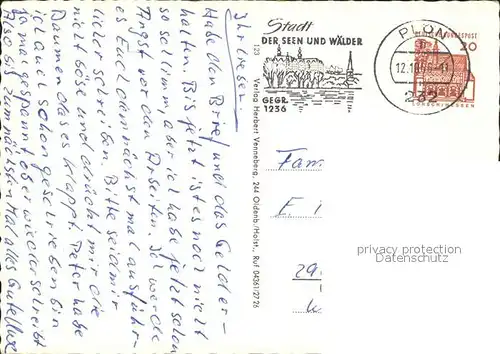 Ihr Lieben
Habe den Brief und das Geld er-
halten. Bis jetzt ist es noch nicht
so schlimm, aber ich habe jetzt schon
Angst vor den Arbeiten. Ich werde
es Euch demnächst mal ausführ-
lich schreiben. Bitte seid mir
nicht böse und drückt mir die
Daumen das es klappt. Peter habe
ich auch schon geschrieben bin
ja mal gespannt, ob er wieder schreibt
Also bis zum nächsten Mal alles Gute
123 Verlag Herbert Venneberg, 244 Oldenb./Holst., Ruf 04361/2726
Stadt
DER SEEN UND WÄLDER
GEGR.
1236
PLÖN
12.10.
DEUTSCHE BUNDESPOST
20
Fam
E.
29
privacy protection
watermark